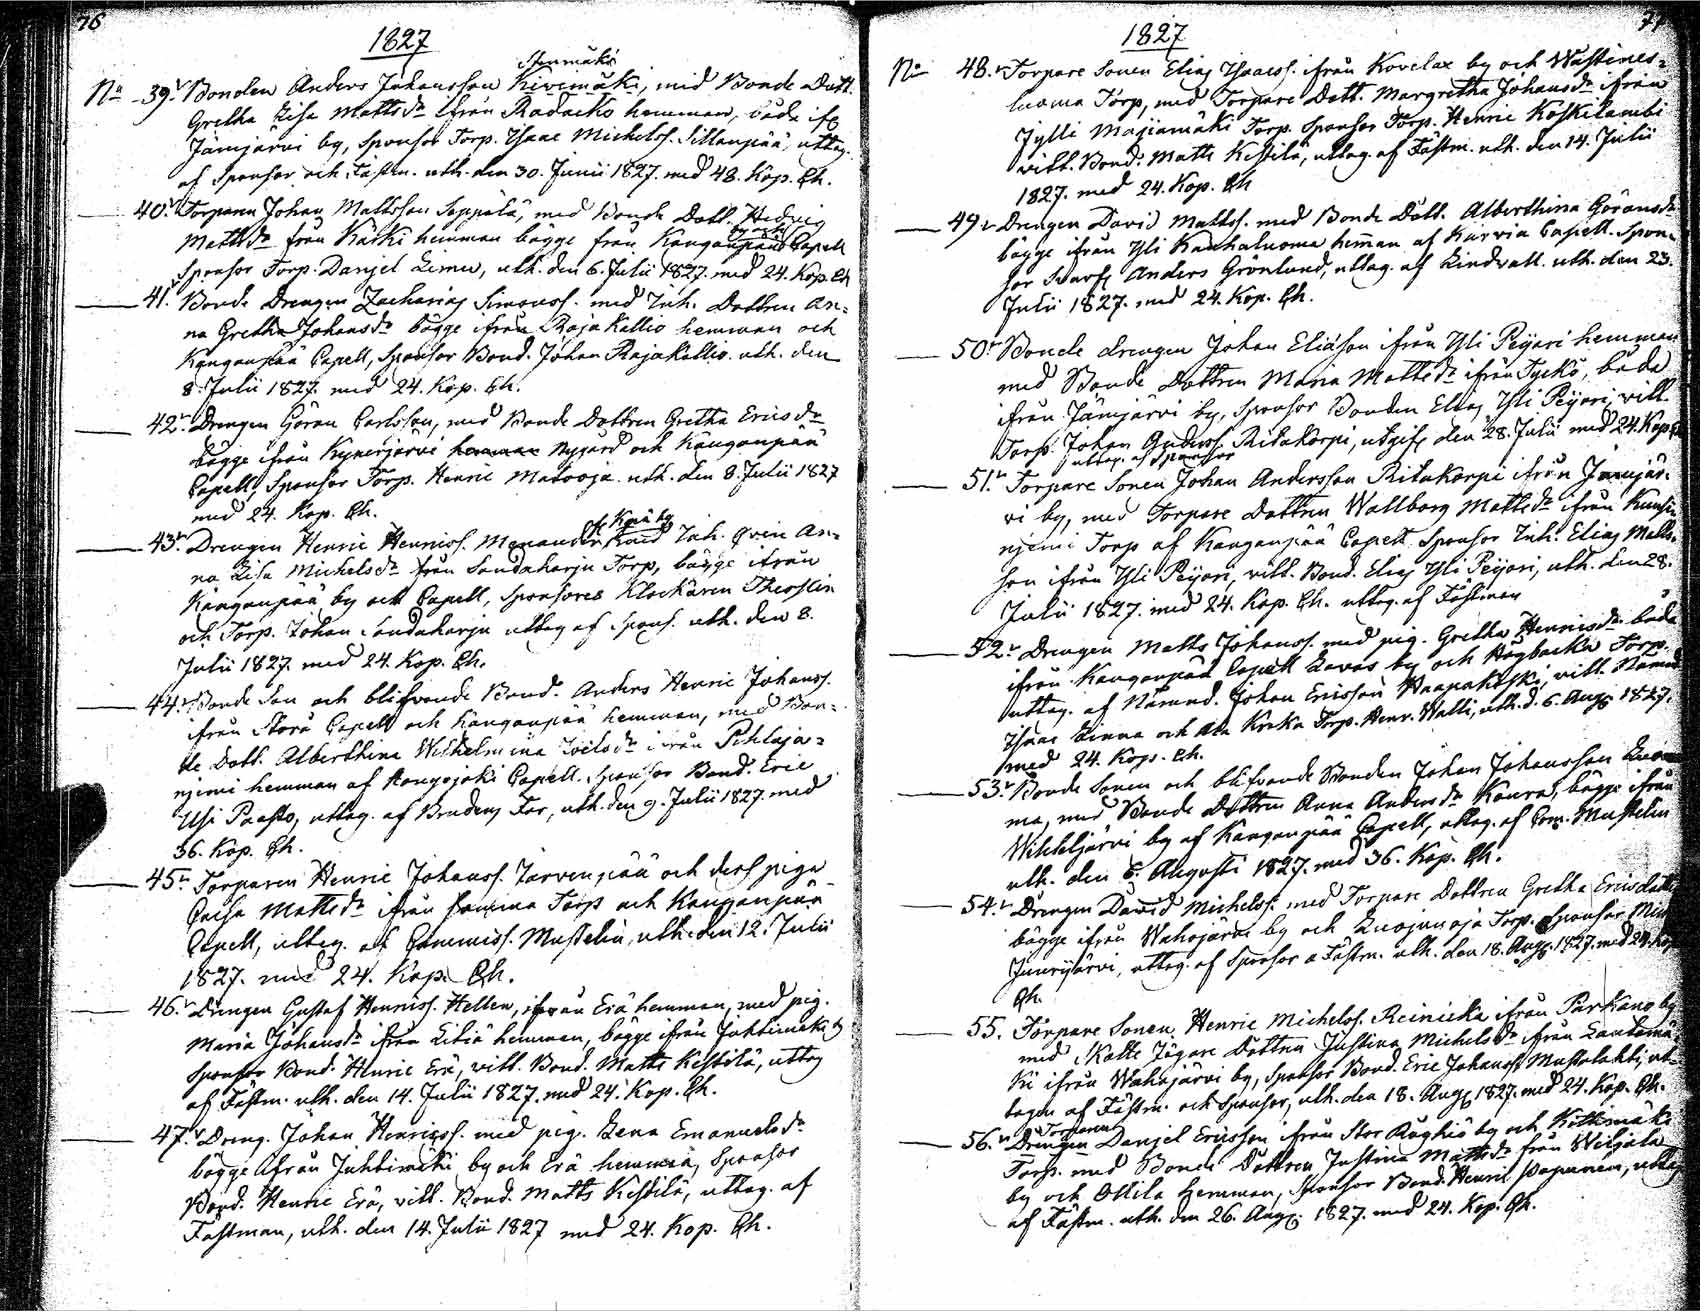 76
1827
Stenmäki
No 39. Bonden Anders Johansson Kivimäki, med Bonde Dott.
Gretha Lisa Matts dr ifrån Radacko hemman, båda ifr
Jämijärvi by, Sponsor Torp. Isaac Michelss. Sillanpää, uttag.
af Sponsor och Fästm. uth. den 30. Junii 1827. med 48. Kop. Ch.
40. Torparen Johan Mattsson Seppälä, med Bonde Dott. Hedvig
by och
Matts dr från Käski hemman bägge från Kanganpää Capell
Sponsor Torp. Danjel Limu, uth. den 6. Julii 1827. med 24. Kop. Ch
41. Bonde Drengen Zacharias Simonss. med Inh. Dottren An=
na Gretha Johans dr bägge ifrån RajaKallio hemman och
Kanganpää Capell, Sponsor Bond. Johan RajaKallio. uth. den
8. Julii 1827. med 24. Kop. Ch.
42. Drengen Göran Carlsson, med Bonde Dottren Gretha Erics dr
bägge ifrån Kynerjärvi Nygård och Kanganpää
Capell, Sponsor Torp. Henric Matooja. uth. den 8. Julii 1827
med 24. Kop. Ch.
43. Drengen Henric Henricss. Inh. Qvin An=
na Lisa Michels dr från Sandaharju Torp, bägge ifrån
Kanganpää by och Capell, Sponsores Klockaren Theoslin
och Torp. Johan Sandaharju uttag af Spons. uth. den 8.
Julii 1827. med 24. Kop. Ch.
44. Bonde Son och blifvande Bond. Anders Henric Johanss.
ifrån Storå Capell och Kanganpää hemman, med Bon=
de Dott. Alberthina Wilhelmina Joels dr ifrån Pihlaja=
njemi hemman af Hongojoki Capell. Sponsor Bond. Eric
Usi Paasto, uttag. af Brudens Far, uth. den 9. Julii 1827. med
36. Kop. Ch.
45. Torparen Henric Johanss. Tarvenpää och dess piga
Caisa Matts dr ifrån Torp och Kanganpää
Capell, uttag. af Commiss. Mustelin, uth. den 12. Julii
1827. med 24. Kop. Ch.
46. Drengen Gustaf Henricss. Hellen, ifrån Erä hemman, med pig.
Maria Johans dr ifrån Libiä hemman, bägge ifrån Juhtimäki by
Sponsor Bond. Henric Erä, vitt. Bond. Matts Kestilä, uttag
af Fästm. uth. den 14. Julii 1827. med 24. Kop. Ch.
47. Dreng. Johan Henricss. med pig. Lena Emanuels dr
bägge ifrån Juhtimäki by och Erä hemman, Sponsor
Bond. Henric Erä, vitt. Bond. Matts Kestilä, uttag. af
Fästman, uth. den 14. Julii 1827 med 24. Kop. Ch.
77
1827
No 48. Torpare Sonen Elias Isaacss. ifrån Kovelax by och Wästines=
luoma Torp, med Torpare Dott. Margretha Johans dr ifrån
Jylli Majiamäki Torp. Sponsor Torp. Henric Koskilambi
vitt. Bond. Matts Kestilä, uttag. af Fästm. uth. den 14. Julii
1827. med 24. Kop. Ch
49. Drengen David Mattss. med Bonde Dott. Alberthina Görans dr
bägge ifrån Yli Kauhaluoma heman af Karvia Capell. Spon=
sor Anders Grönlund, uttag. af Lindvall. uth. den 23.
Julii 1827. med 24. Kop. Ch.
50. Bonde drengen Johan Eliasson ifrån Yli Peijari hemman
med Bonde Dottren Maria Matts dr ifrån Tyckö, båda
ifrån Jämijärvi by, Sponsor Bonden Elias Yli Peijari, vitt.
Torp. Johan Anderss. Ritakorpi, utgifr den 28. Julii med 24. Kop.
uttag. af Sponsor
51. Torpare Sonen Johan Andersson Ritakorpi ifrån Jämijär=
vi by, med Torpare Dottren Wallborg Matts dr ifrån Kuusi
njemi Torp af Kanganpää Capell. Sponsor Inh. Elias Matts=
son ifrån Yli Peijari, vitt. Bond. Elias Yli Peijari, uth. den 28.
Julii 1827. med 24. Kop. Ch. uttag. af Fästman
52. Drengen Matts Johanss. med pig. Gretha Henrics dr båda
ifrån Kanganpää Capell Lavas by och Högbacka Torp.
uttag. af Nämnd. Johan Ericsson Haapakoski, vitt. Nämnd
Isaac Linna och Krika Torp. Henr. Watti, uth. d. 6. Aug. 1827.
med 24. Kop. Ch.
53. Bonde Sonen och blifvande Bonden Johan Johansson Luo=
ma, med Bonde Dottren Anna Anders dr Konrad, bägge ifrån
Wihteljärvi by af Kanganpää Capell, uttag. af Com. Mustelin
uth. den 6. Augusti 1827. med 36. Kop. Ch.
54. Drengen David Michelss. med Torpare Dottren Gretha Ericsdotter
bägge ifrån Wahojärvi by och Luojunoja Torp. Sponsor
Junnijärvi, uttag. af Sponsor a Fästm. uth. den 18. Aug. 1827. med 24. Kop
Ch.
55. Torpare Sonen Henric Michelss. Reinicka ifrån Parkano by
med Skatte Jägare Dottren Justina Michels dr ifrån Lautamä
ki ifrån Wahojärvi by, Sponsor Bond. Eric Johanss. Mustalahti, ut=
tagen af Fästm. och Sponsor, uth. den 18. Aug. 1827. med 24. Kop. Ch.
Torparen
56. Drengen Danjel Ericsson ifrån Stor Röyhiö by och Kottimäki
Torp. med Bonde Dottren Justina Matts dr från Wiljala
by och Ollila hemman, Sponsor Bond. Henric Papunen, uttag
af Fästm. uth. den 26. Aug. 1827. med 24. Kop. Ch.